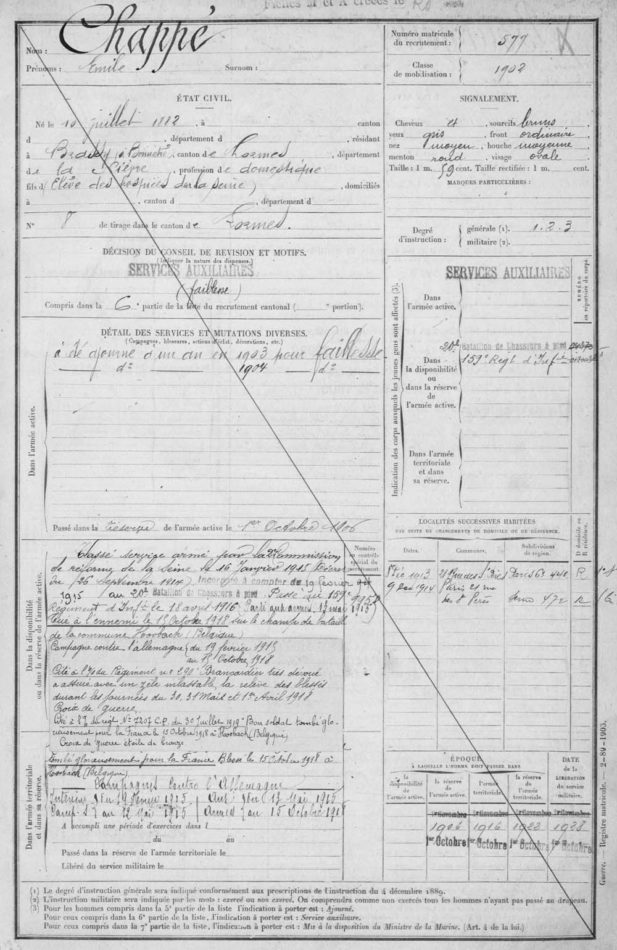 Chappé
Nom :
Prénoms : Emile Surnom :
Numéro matricule du recrutement : 577
Classe de mobilisation : 1902
ÉTAT CIVIL.
Né le 10 juillet 1882, à canton
d , département d , résidant
à canton de Lormes, département
de la Nièvre, profession de domestique
fils d'Elève des hospices de la Seine) , domiciliés
à , canton d , département d
N° 8 de tirage dans le canton de Lormes.
SIGNALEMENT.
Cheveux et sourcils bruns
yeux gris, front ordinaire
nez moyen, bouche moyenne
menton rond, visage ovale
Taille : 1 m. 59 cent. Taille rectifiée : 1 m. cent.
MARQUES PARTICULIÈRES :
Degré d'instruction : générale (1). 1.2.3
militaire (2).
DÉCISION DU CONSEIL DE REVISION ET MOTIFS.
(Indiquer la nature des dispenses.)
SERVICES AUXILIAIRES
(faiblesse)
Compris dans la 6e partie de la liste du recrutement cantonal ( portion).
DÉTAIL DES SERVICES ET MUTATIONS DIVERSES.
(Campagnes, blessures, actions d'éclat, décorations, etc.)
Dans l'armée active.
ajourné d'un an en 1903 pour faiblesse
do 1904 do
Passé dans la réserve de l'armée active le 1er Octobre 1906
Indication des corps auxquels les jeunes gens sont affectés (3).
SERVICES AUXILIAIRES
NUMÉRO au répertoire du corps.
Dans l'armée active.
20e Bataillon de Chasseurs à pied
159e Régt d'Infie
Dans la disponibilité ou dans la réserve de l'armée active.
Dans l'armée territoriale et dans sa réserve.
Dans la disponibilité ou dans la réserve de l'armée active.
Numéro au contrôle spécial du recrutement
Classé service armé par la Commission
de réforme de la Seine le 16 Janvier 1915
du (26 Septembre 1914) Incorporé à compter du 19 février
1915 au 20e Bataillon de Chasseurs à pied Passé au 159e
Régiment d'Inft le 18 avril 1916 Parti aux armées 12 mai 1915
Tué à l'ennemi le 15 Octobre 1918 sur le champ de bataille
de la commune Hoorbach (Belgique)
Campagne contre l'allemagne du 19 février 1915
au 15 Octobre 1918
Cité à l'O/ du Régiment no 290 Brancardier très dévoué
a assuré avec un zèle inlassable, la relève des blessés
durant les journées du 30, 31 Mars et 1er Avril 1918
Croix de guerre.
No 7207 C.P. du 30 Juillet 1919 Bon soldat tombé glo-
rieusement pour la France le 15 Octobre 1918 à Hoorbach (Belgique)
Croix de guerre étoile de bronze
Dans l'armée territoriale et dans sa réserve.
Tombé glorieusement pour la France le 15 Octobre 1918 à
Hoorbach (Belgique)
Campagnes Contre l'Allemagne
Intérieur du 19 Février 1915 au 11 Mai 1915
Armées du 12 Mai 1915 au 15 Octobre 1918
A accompli une période d'exercices dans l
du au
Passé dans la réserve de l'armée territoriale le
Libéré du service militaire le
LOCALITÉS SUCCESSIVES HABITÉES
PAR SUITE DE CHANGEMENTS DE DOMICILE OU DE RÉSIDENCE.
Dates. Communes. Subdivisions de région. D. domicile ou R. résidence.
1913 Paris 6e R
1914 Paris 472 R
ÉPOQUE
À LAQUELLE L'HOMME DOIT PASSER DANS
DATE DE LA LIBÉRATION du service militaire.
la disponibilité de l'armée active. la réserve de l'armée active. l'armée territoriale. la réserve de l'armée territoriale.
1906 1916 1922 1928
1er Octobre 1er Octobre 1er Octobre 1er Octobre
Guerre. — Registre matricule. — 2-89-1903.
(1) Le degré d'instruction générale sera indiqué conformément aux prescriptions de l'instruction du 4 décembre 1889.
(2) L'instruction militaire sera indiquée par les mots : exercé ou non exercé. On comprendra comme non exercés tous les hommes n'ayant pas passé au drapeau.
(3) Pour les hommes compris dans la 5e partie de la liste l'indication à porter est : Ajourné.
Pour ceux compris dans la 6e partie de la liste, l'indication à porter est : Service auxiliaire.
Pour ceux compris dans la 7e partie de la liste, l'indication à porter est : Mis à la disposition du Ministre de la Marine. (Art. 4 de la loi.)